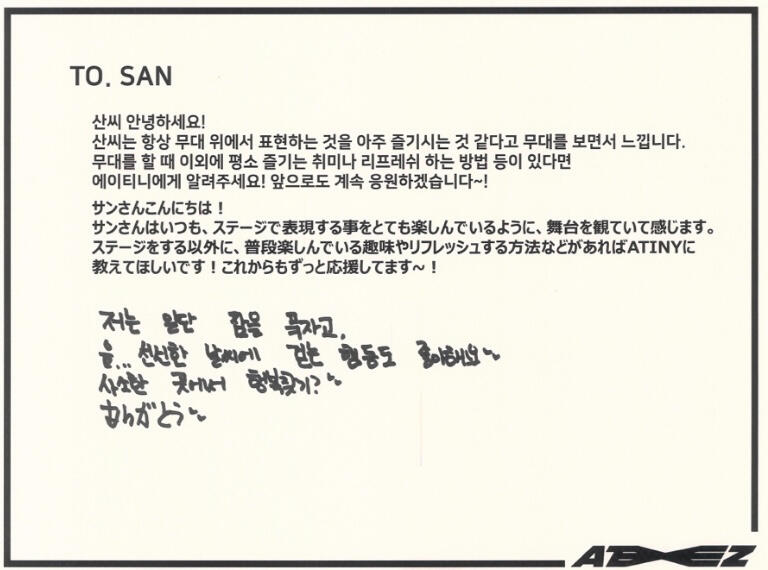 TO. SAN
산씨 안녕하세요!
산씨는 항상 무대 위에서 표현하는 것을 아주 즐기시는 것 같다고 무대를 보면서 느낍니다.
무대를 할 때 이외에 평소 즐기는 취미나 리프레쉬 하는 방법 등이 있다면
에이티니에게 알려주세요! 앞으로도 계속 응원하겠습니다~!
サンさんこんにちは！
サンさんはいつも、ステージで表現する事をとても楽しんでいるように、舞台を観ていて感じます。
ステージをする以外に、普段楽しんでいる趣味やリフレッシュする方法などがあればATINYに
教えてほしいです！これからもずっと応援してます～！
저는 일단 잠을 푹자고,
음... 선선한 날씨에 걷는 행동도 좋아해요
사소한 곳에서 행복찾기?
ありがとう
ATEEZ